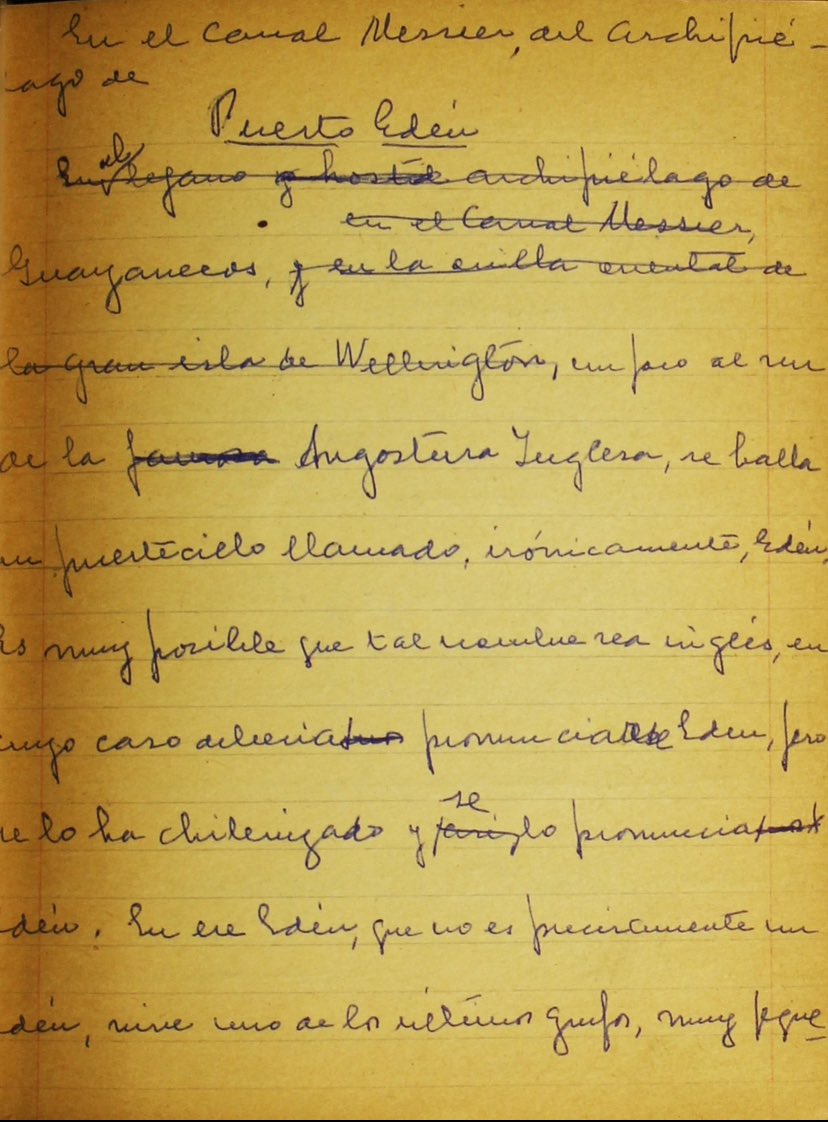 En el Canal Messier, del Archipié-
lago de
Puerto Edén
el
En lejano y hostil archipiélago de
en el Canal Messier,
Guayanecos, y en la orilla oriental de
la gran isla de Wellington, un poco al sur
de la famosa Angostura Inglesa, se halla
un puertecillo llamado, irónicamente, Edén.
Es muy posible que tal nombre sea inglés, en
cuyo caso debería pronunciarse Eden, pero
se
se lo ha chilenizado y lo pronuncia
Edén. En ese Edén, que no es precisamente un
edén, vive uno de los últimos grupos, muy peque